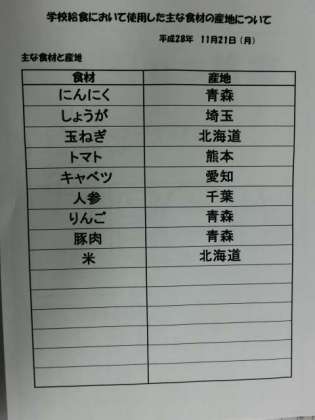 学校給食において使用した主な食材の産地について
平成28年 11月21日(月)
主な食材と産地
食材 産地
にんにく 青森
しょうが 埼玉
玉ねぎ 北海道
トマト 熊本
キャベツ 愛知
人参 千葉
りんご 青森
豚肉 青森
米 北海道